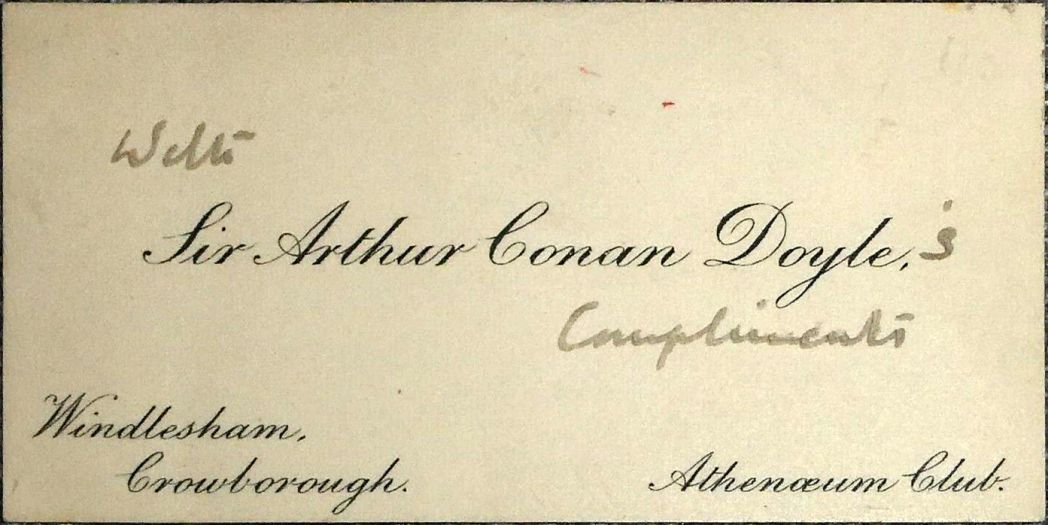 With
Sir Arthur Conan Doyle,'s
Compliments
Windlesham.
Crowborough.
Athenæum Club.